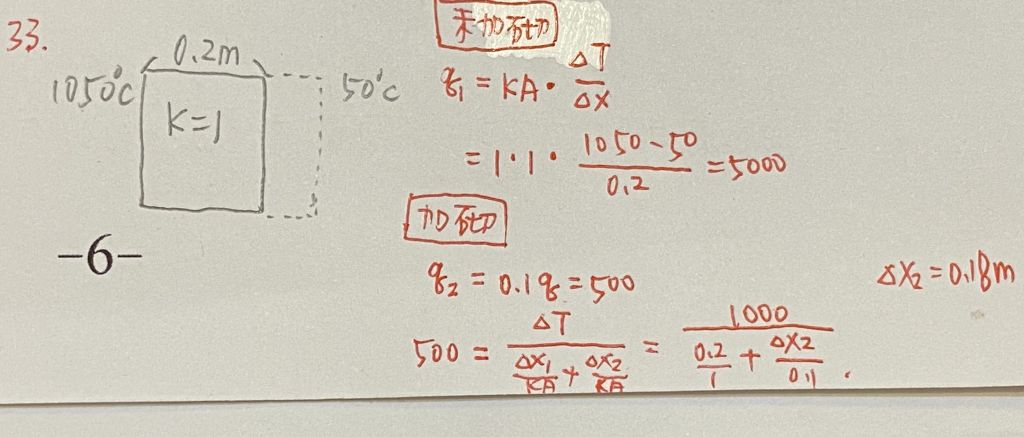 33.
0.2m
1050°C
50°C
K=1
-6-
未加砌
q₁ = KA · ΔT/ΔX
= 1 · 1 · (1050-50)/0.2 = 5000
加砌
q₂ = 0.1q = 500
ΔX₂ = 0.18m
500 = ΔT/(ΔX₁/KA + ΔX₂/KA) = 1000/(0.2/1 + ΔX2/0.1).